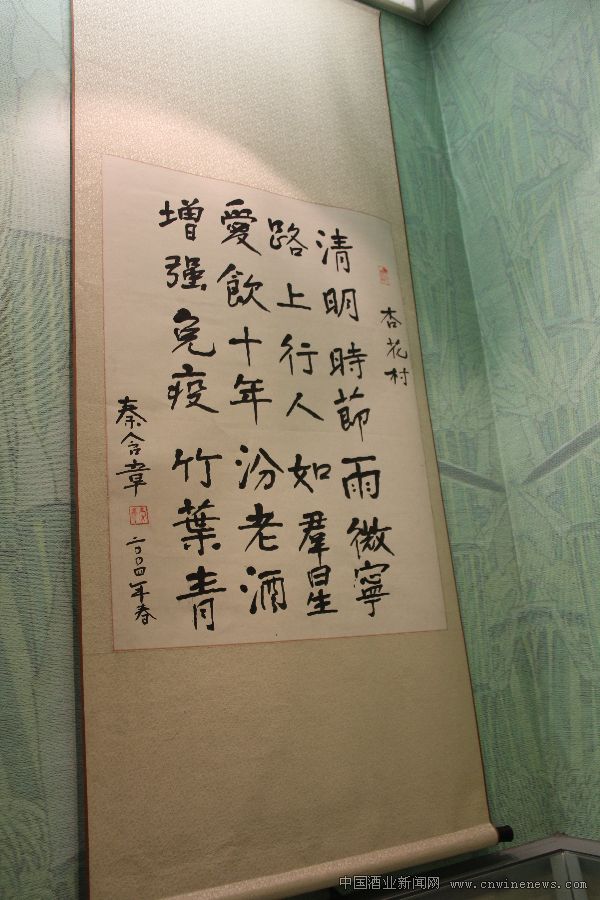 杏花村
清明時節雨微寧
路上行人如群星
愛飲十年汾老酒
增强免疫竹葉青
秦含章
二〇〇四年春
中国酒业新闻网 www.cnwinenews.com